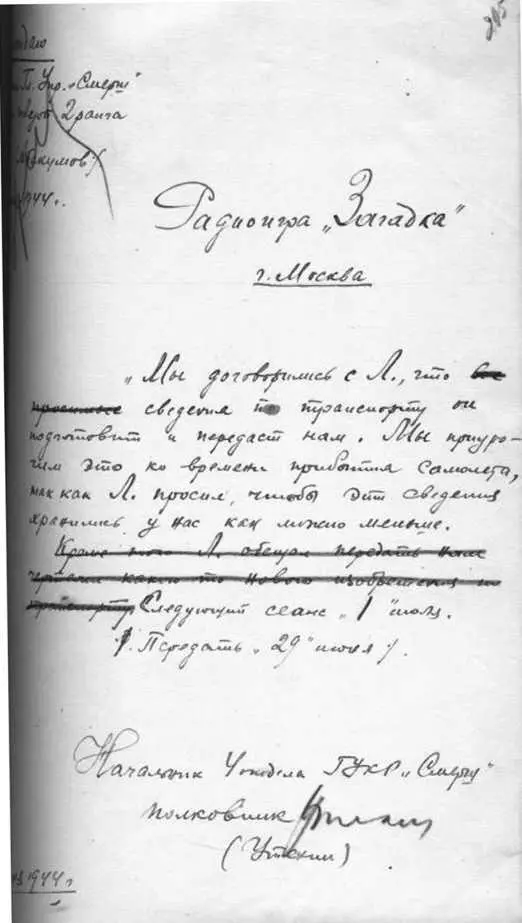 205
Упр. „Смерш"
2 ранга
1944 г.
Радиоигра „Загадка"
г. Москва
„Мы договорились с Л., что все
просимые сведения по транспорту он
подготовит и передаст нам. Мы приуро-
чим это ко времени прибытия самолета,
так как Л. просил, чтобы эти сведения
хранились у нас как можно меньше.
Кроме того Л. обещал передать нам
чертежи какого то нового изобретения по
транспорту. Следующий сеанс „1" июля.
/. Передать „29" июня /.
Начальник 3 отдела ГУКР „Смерш"
полковник
(Утехин)
1944 г